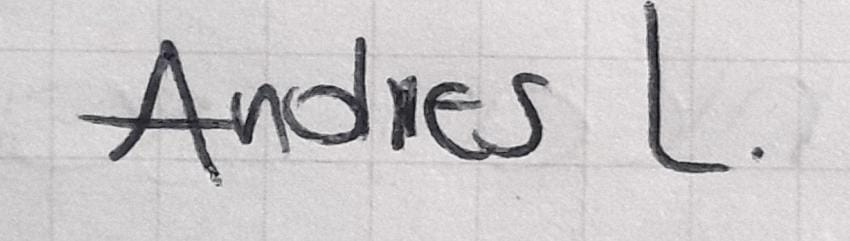 Andres L.